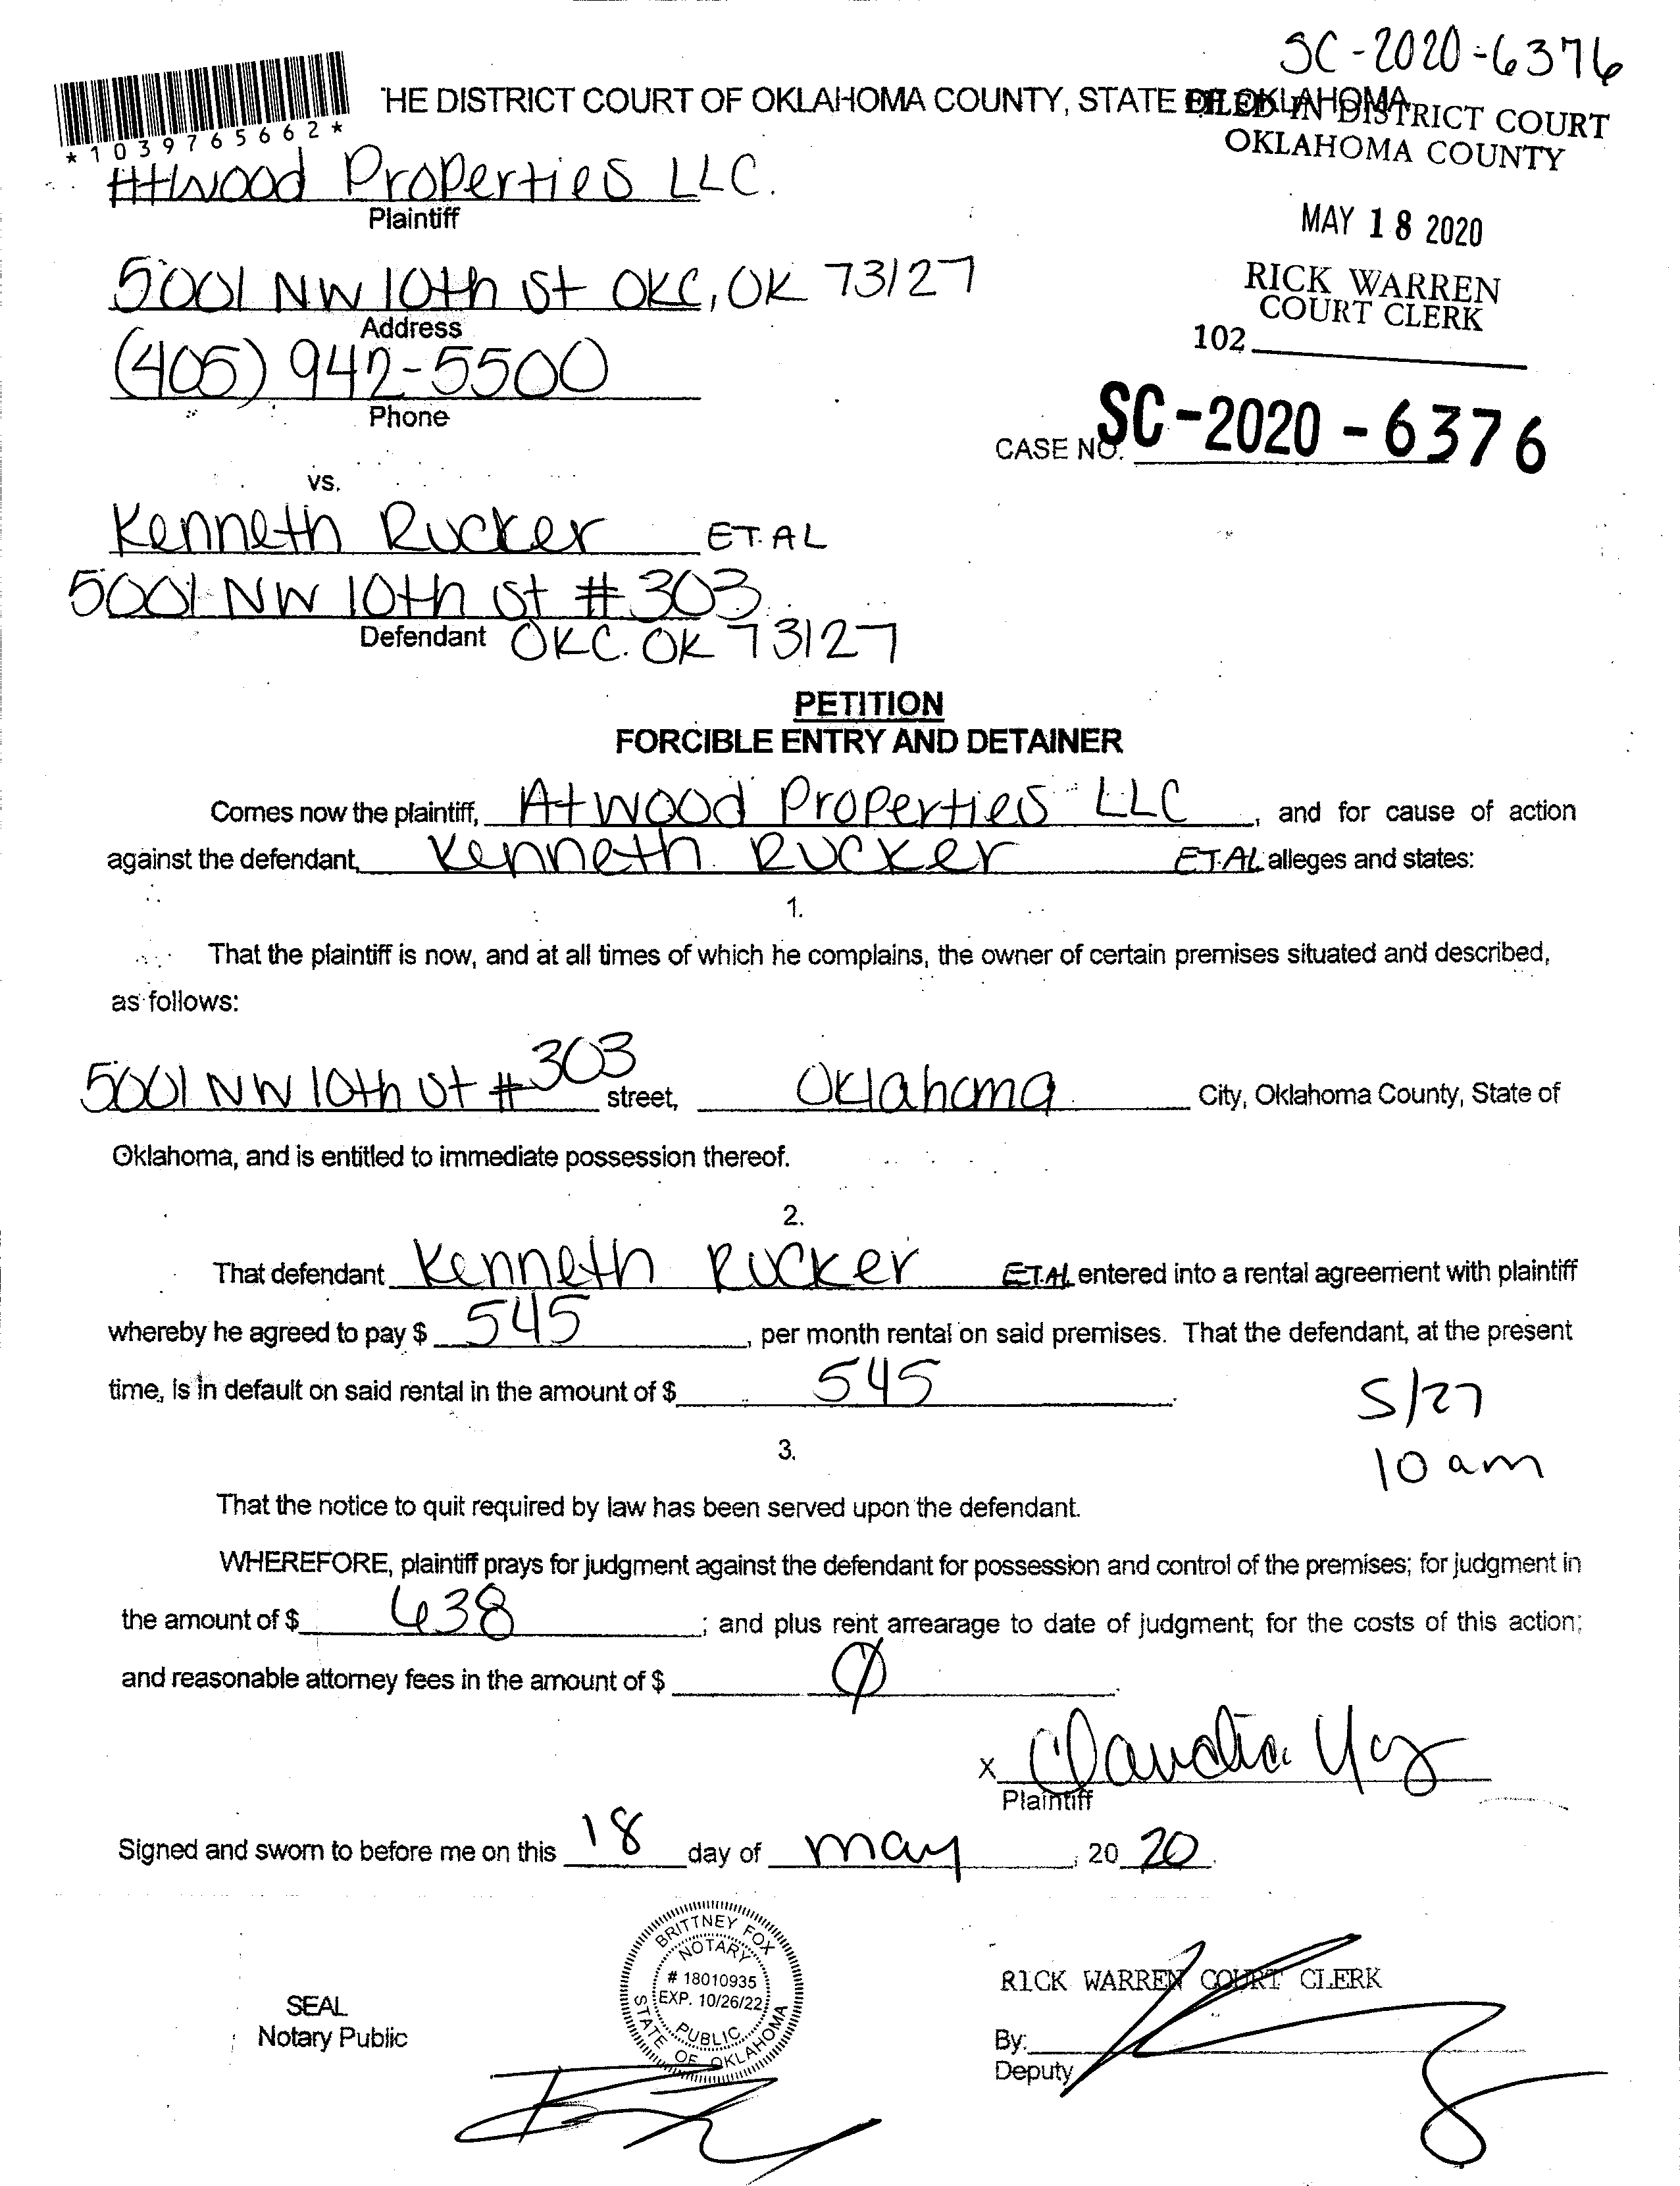 SC-2020-6376
*1039765662*
'HE DISTRICT COURT OF OKLAHOMA COUNTY, STATE OF OKLAHOMA
FILED IN DISTRICT COURT
OKLAHOMA COUNTY
MAY 18 2020
RICK WARREN
COURT CLERK
102
Atwood Properties LLC.
Plaintiff
5001 NW 10th St OKC, OK 73127
Address
(405) 942-5500
Phone
CASE NO. SC-2020-6376
vs.
Kenneth Rucker ET.AL
5001 NW 10th St #303
Defendant OKC. OK 73127
PETITION
FORCIBLE ENTRY AND DETAINER
Comes now the plaintiff, Atwood Properties LLC, and for cause of action
against the defendant, Kenneth Rucker ET.AL alleges and states:
1.
That the plaintiff is now, and at all times of which he complains, the owner of certain premises situated and described,
as follows:
5001 NW 10th St #303 street, Oklahoma City, Oklahoma County, State of
Oklahoma, and is entitled to immediate possession thereof.
2.
That defendant Kenneth Rucker ET.AL entered into a rental agreement with plaintiff
whereby he agreed to pay $ 545, per month rental on said premises. That the defendant, at the present
time, is in default on said rental in the amount of $ 545.
5/27
10 am
3.
That the notice to quit required by law has been served upon the defendant.
WHEREFORE, plaintiff prays for judgment against the defendant for possession and control of the premises; for judgment in
the amount of $ 638; and plus rent arrearage to date of judgment; for the costs of this action;
and reasonable attorney fees in the amount of $ Ø.
x Claudia
Plaintiff
Signed and sworn to before me on this 18 day of may, 20 20.
BRITTNEY FOX
NOTARY
# 18010935
EXP. 10/26/22
PUBLIC
STATE OF OKLAHOMA
SEAL
Notary Public
RICK WARREN COURT CLERK
By:
Deputy